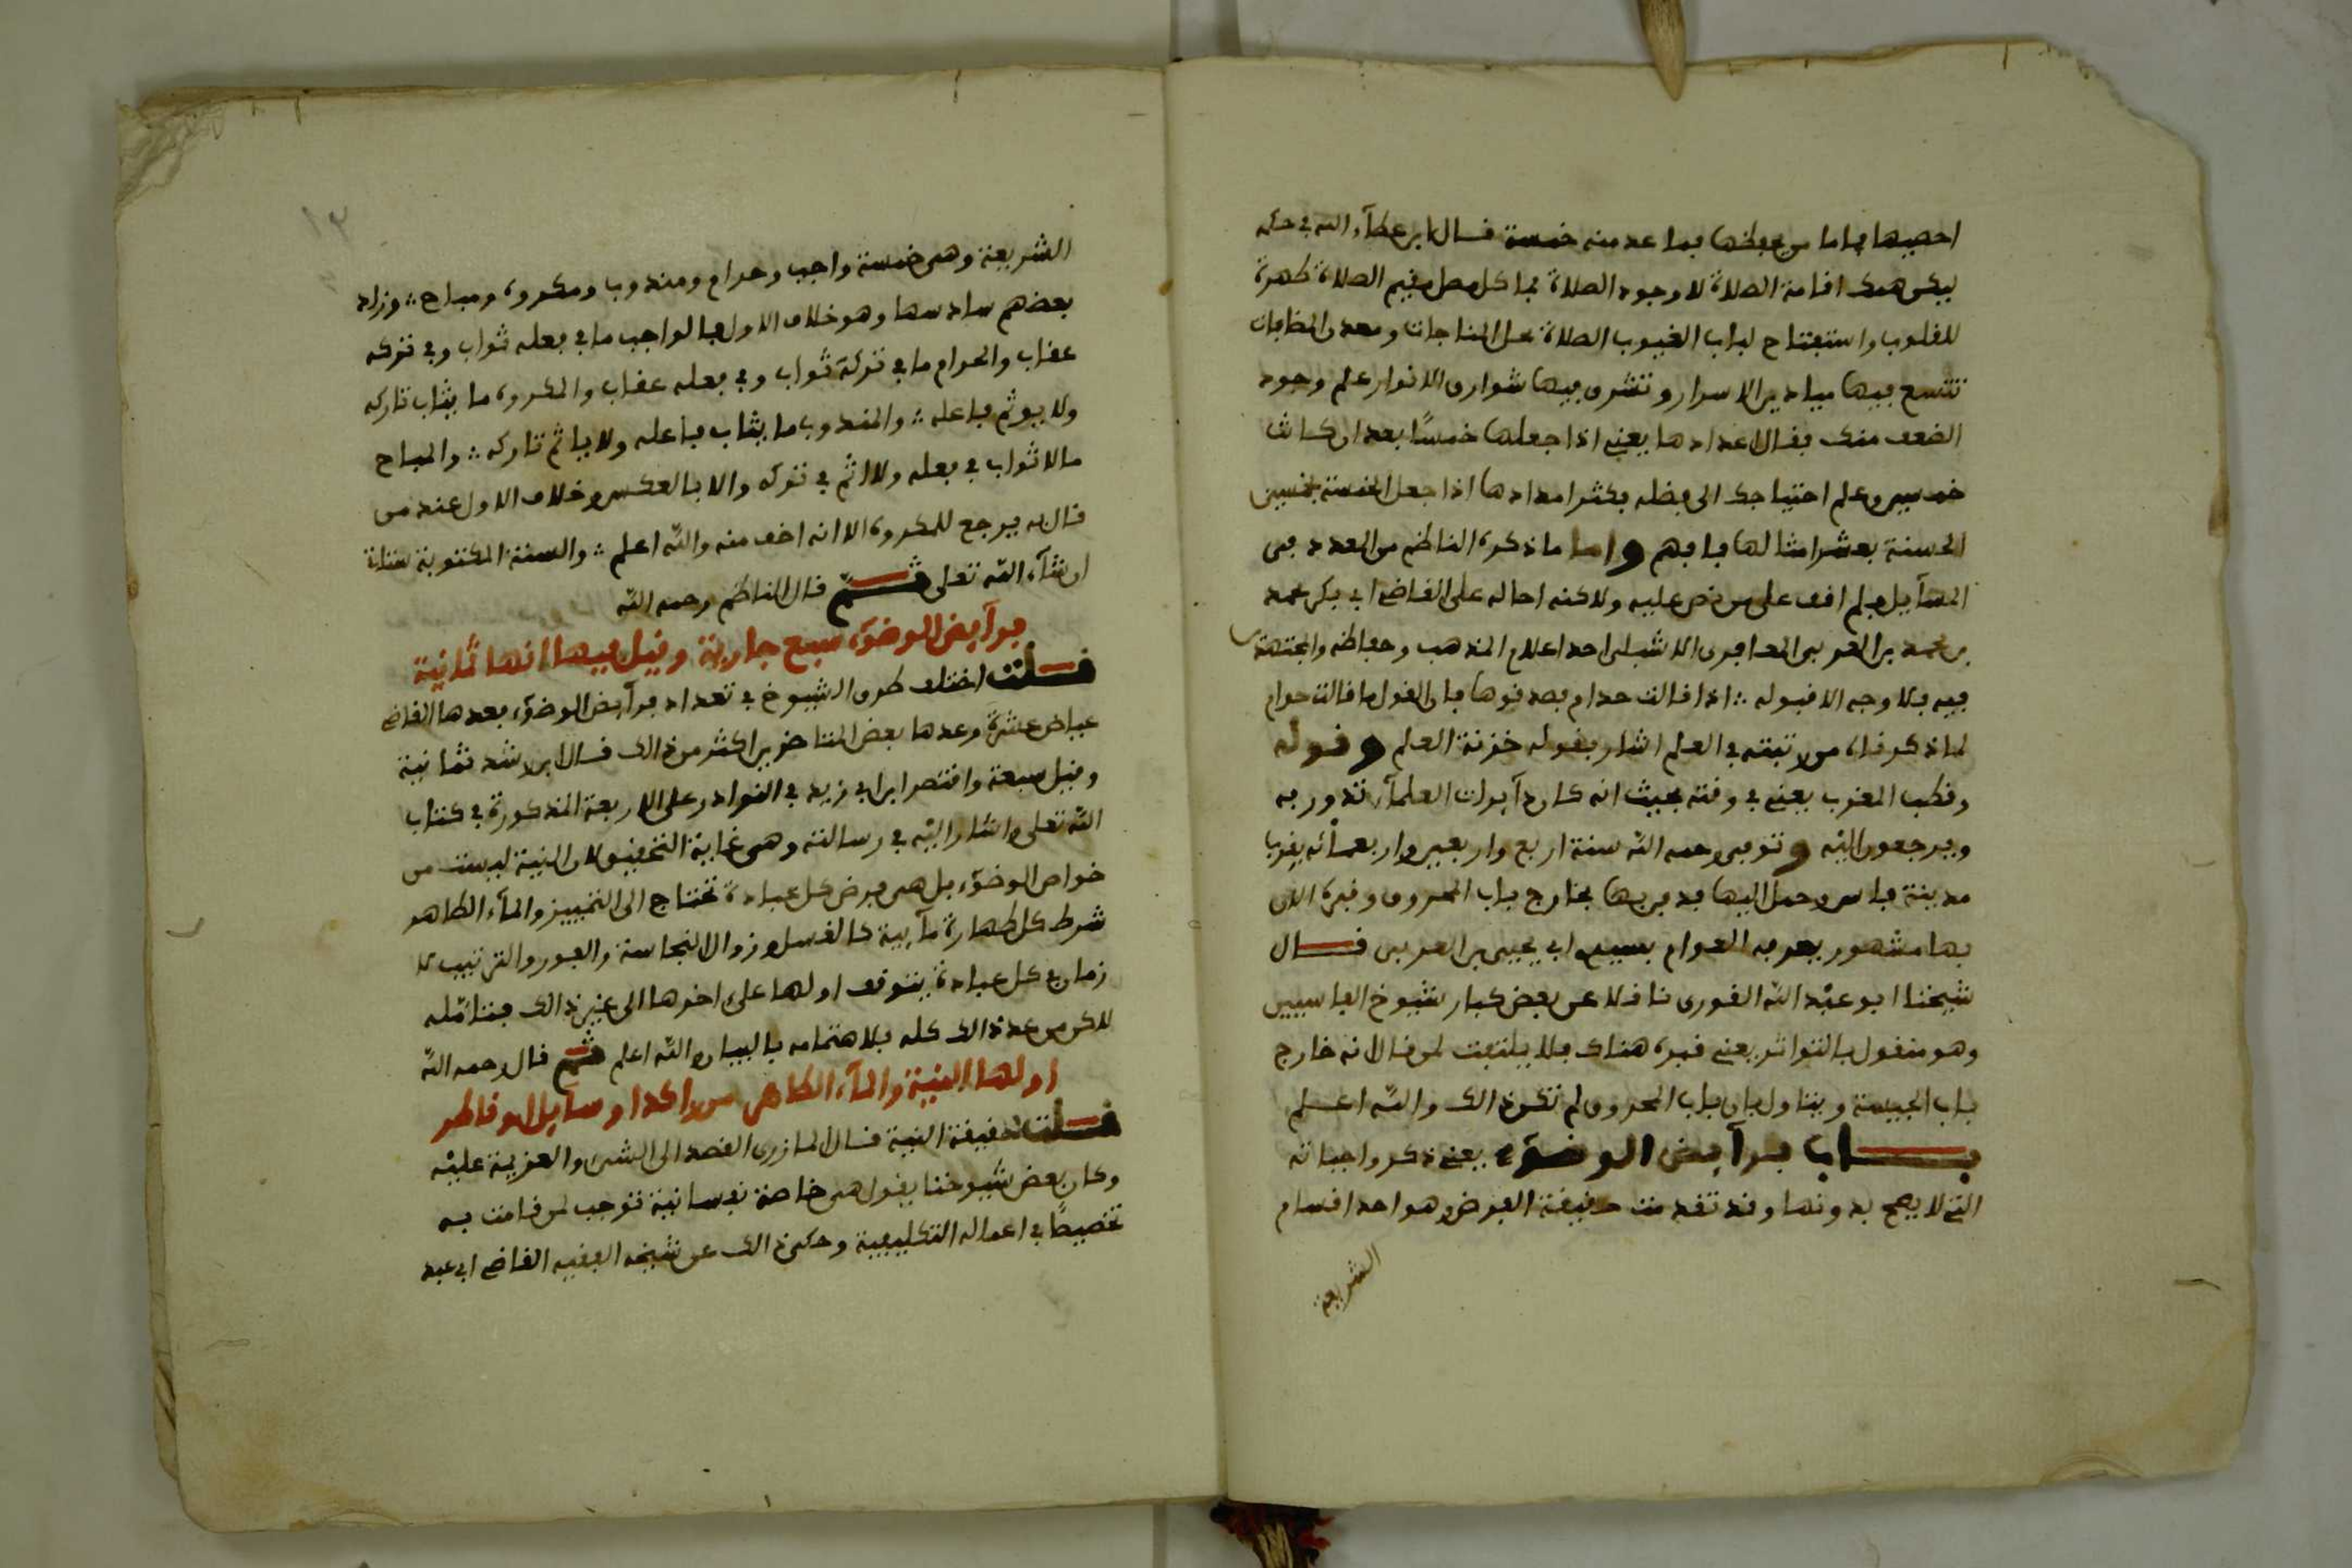 احصيها فاما من بعضها فما عد منه خمسة قال ابن عطاء الله في حكمه
ليكن همك اقامة الصلاة لا وجود الصلاة فما كل مصل مقيم الصلاة طهرة
للقلوب واستفتاح لباب الغيوب الصلاة محل المناجات ومعدن المضافات
تتسع فيها ميادين الاسرار وتشرق فيها شوارق الانوار علم وجود
الضعف منك فقلل اعدادها يعني اذا جعلها خمسًا بعد ان كانت
خمسين وعلم احتياجك الى فضله فكثر امدادها اذا جعل الخمسة بخمسين
الحسنة بعشر امثالها فافهم واما ما ذكره الناظم من العدد في
المسآيل فلم اقف على من نص عليه ولاكنه احاله على القاضي ابي بكر محمد
بن محمد بن العربي المعافري الاشبلي احد اعلام المذهب وحفاظه والمجتهدين
فيه فلا وجه الا قبوله ∴ اذا قالت حدام فصدقوها فان القول ما قالت حدام
لما ذكرناه من رتبته في العلم اشار بقوله خزنة العلم وقوله
وقطب المغرب يعني في وقته بحيث انه كان دآيرات العلمآء تدور به
ويرجعون اليه وتوفي رحمه الله سنة اربع واربعين واربعمائة بقرب
مدينة فاس وحمل اليها فدفن بها بخارج باب المحروق وقبره الان
بها مشهور يعرفه العوام بسيدي ابي يحيى بن العربي قال
شيخنا ابو عبد الله القوري ناقلا عن بعض كبار شيوخ الفاسيين
وهو منقول بالتواتر يعني قبره هناك فلا يلتفت لمن قال انه خارج
باب الجيسة ويتاول بان باب المحروق لم تكن ذالك والله اعلم
باب فرآيض الوضوء يعني ذكر واجباته
التي لا يصح بدونها وقد تقدمت حقيقة الفرض وهو احد اقسام
الشريعة
١٣
الشريعة وهي خمسة واجب وحرام ومندوب ومكروه ومباح ∴ وزاد
بعضهم سادسها وهو خلاف الاولى فالواجب ما في فعله ثواب وفي تركه
عقاب والحرام ما في تركه ثواب وفي فعله عقاب والمكروه ما يثاب تاركه
ولا يوثم فاعله ∴ والمندوب ما يثاب فاعله ولا ياثم تاركه ∴ والمباح
ما لا ثواب في فعله ولا اثم في تركه ولا بالعكس وخلاف الاولى عند من
قال به يرجع للمكروه الا انه اخف منه والله اعلم ∴ والسنة المكتوبة ستاتي
ان شآء الله تعلى ثم قال الناظم رحمه الله
فرآيض الوضوء سبع جارية وقيل فيها انها ثمانية
قلت اختلف طرق الشيوخ في تعداد فرآيض الوضوء فعدها القاضي
عياض عشرة وعدها بعض المتاخرين اكثر من ذالك قال ابن رشد ثمانية
وقيل سبعة واقتصر ابن ابي زيد في النوادر على الاربعة المذكورة في كتاب
الله تعلى واشار اليه في رسالته وهي غاية التحقيق لان النية ليست من
خواص الوضوء بل هي فرض كل عبادة تحتاج الى التمييز والمآء الطاهر
شرط كل طهارة مآيية كالغسل وزوال النجاسة والفور والترتيب
زمان في كل عبادة يتوقف اولها على اخرها الى غير ذالك فتامله
لاكن من عد ذالك كله فلاهتمامه بالبيان والله اعلم ثم قال رحمه الله
اولها النية والمآء الطاهر من راكد او سايل او قاطر
قلت حقيقة النية قال المازري القصد الى الشيء والعزيمة عليه
وكان بعض شيوخنا يقول هي خاصة نفسانية توجب لمن قامت به
تخصيصًا في اعماله التكليفية وحكى ذالك عن شيخه الفقيه القاضي ابي عبد